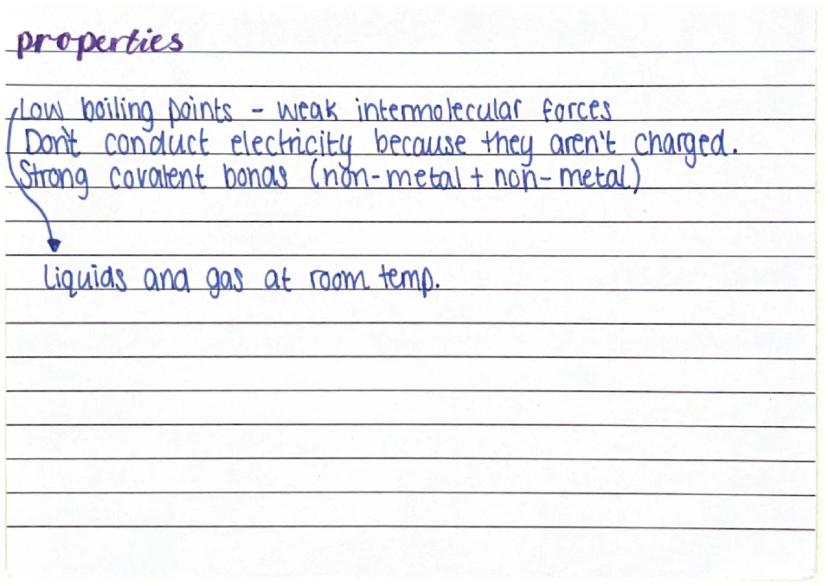 properties
Low boiling points - weak intermolecular forces
Don't conduct electricity because they aren't charged.
Strong covalent bonds (non-metal + non-metal)
Liquids and gas at room temp.